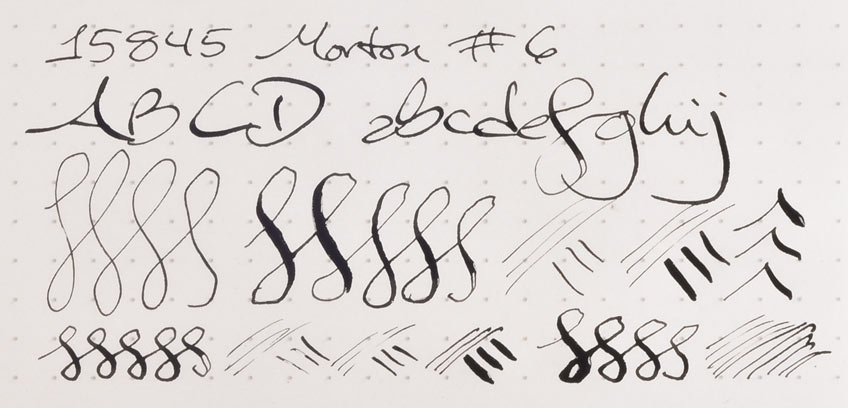 15845 Morton # 6
A B C D abcdefghij